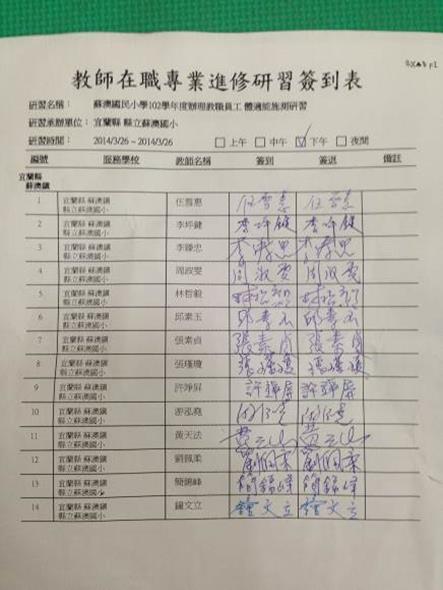 教師在職專業進修研習簽到表
研習名稱： 蘇澳國民小學102學年度辦理教職員工 體適能施測研習
研習承辦單位： 宜蘭縣 縣立蘇澳國小
研習時間： 2014/3/26 ~ 2014/3/26 □ 上午 □ 中午 ☑ 下午 □ 夜間
編號 服務學校 教師名稱 簽到 簽退 備註
宜蘭縣
蘇澳鎮
1 宜蘭縣 蘇澳鎮 伍雪惠 伍雪惠 伍雪惠
縣立蘇澳國小
2 宜蘭縣 蘇澳鎮 李坪鍵 李坪鍵 李坪鍵
縣立蘇澳國小
3 宜蘭縣 蘇澳鎮 李臻忠 李臻忠 李臻忠
縣立蘇澳國小
4 宜蘭縣 蘇澳鎮 周淑雯 周淑雯 周淑雯
縣立蘇澳國小
5 宜蘭縣 蘇澳鎮 林哲毅 林哲毅 林哲毅
縣立蘇澳國小
6 宜蘭縣 蘇澳鎮 邱素玉 邱素玉 邱素玉
縣立蘇澳國小
7 宜蘭縣 蘇澳鎮 張素貞 張素貞 張素貞
縣立蘇澳國小
8 宜蘭縣 蘇澳鎮 張瑾瓊
縣立蘇澳國小
9 宜蘭縣 蘇澳鎮 許竫屏 許竫屏 許竫屏
縣立蘇澳國小
10 宜蘭縣 蘇澳鎮 游泓堯
縣立蘇澳國小
11 宜蘭縣 蘇澳鎮 黃天法
縣立蘇澳國小
12 宜蘭縣 蘇澳鎮 劉佩柔 劉佩柔 劉佩柔
縣立蘇澳國小
13 宜蘭縣 蘇澳鎮 簡錦峰 簡錦峰 簡錦峰
縣立蘇澳國小
14 宜蘭縣 蘇澳鎮 鐘文立 鐘文立 鐘文立
縣立蘇澳國小